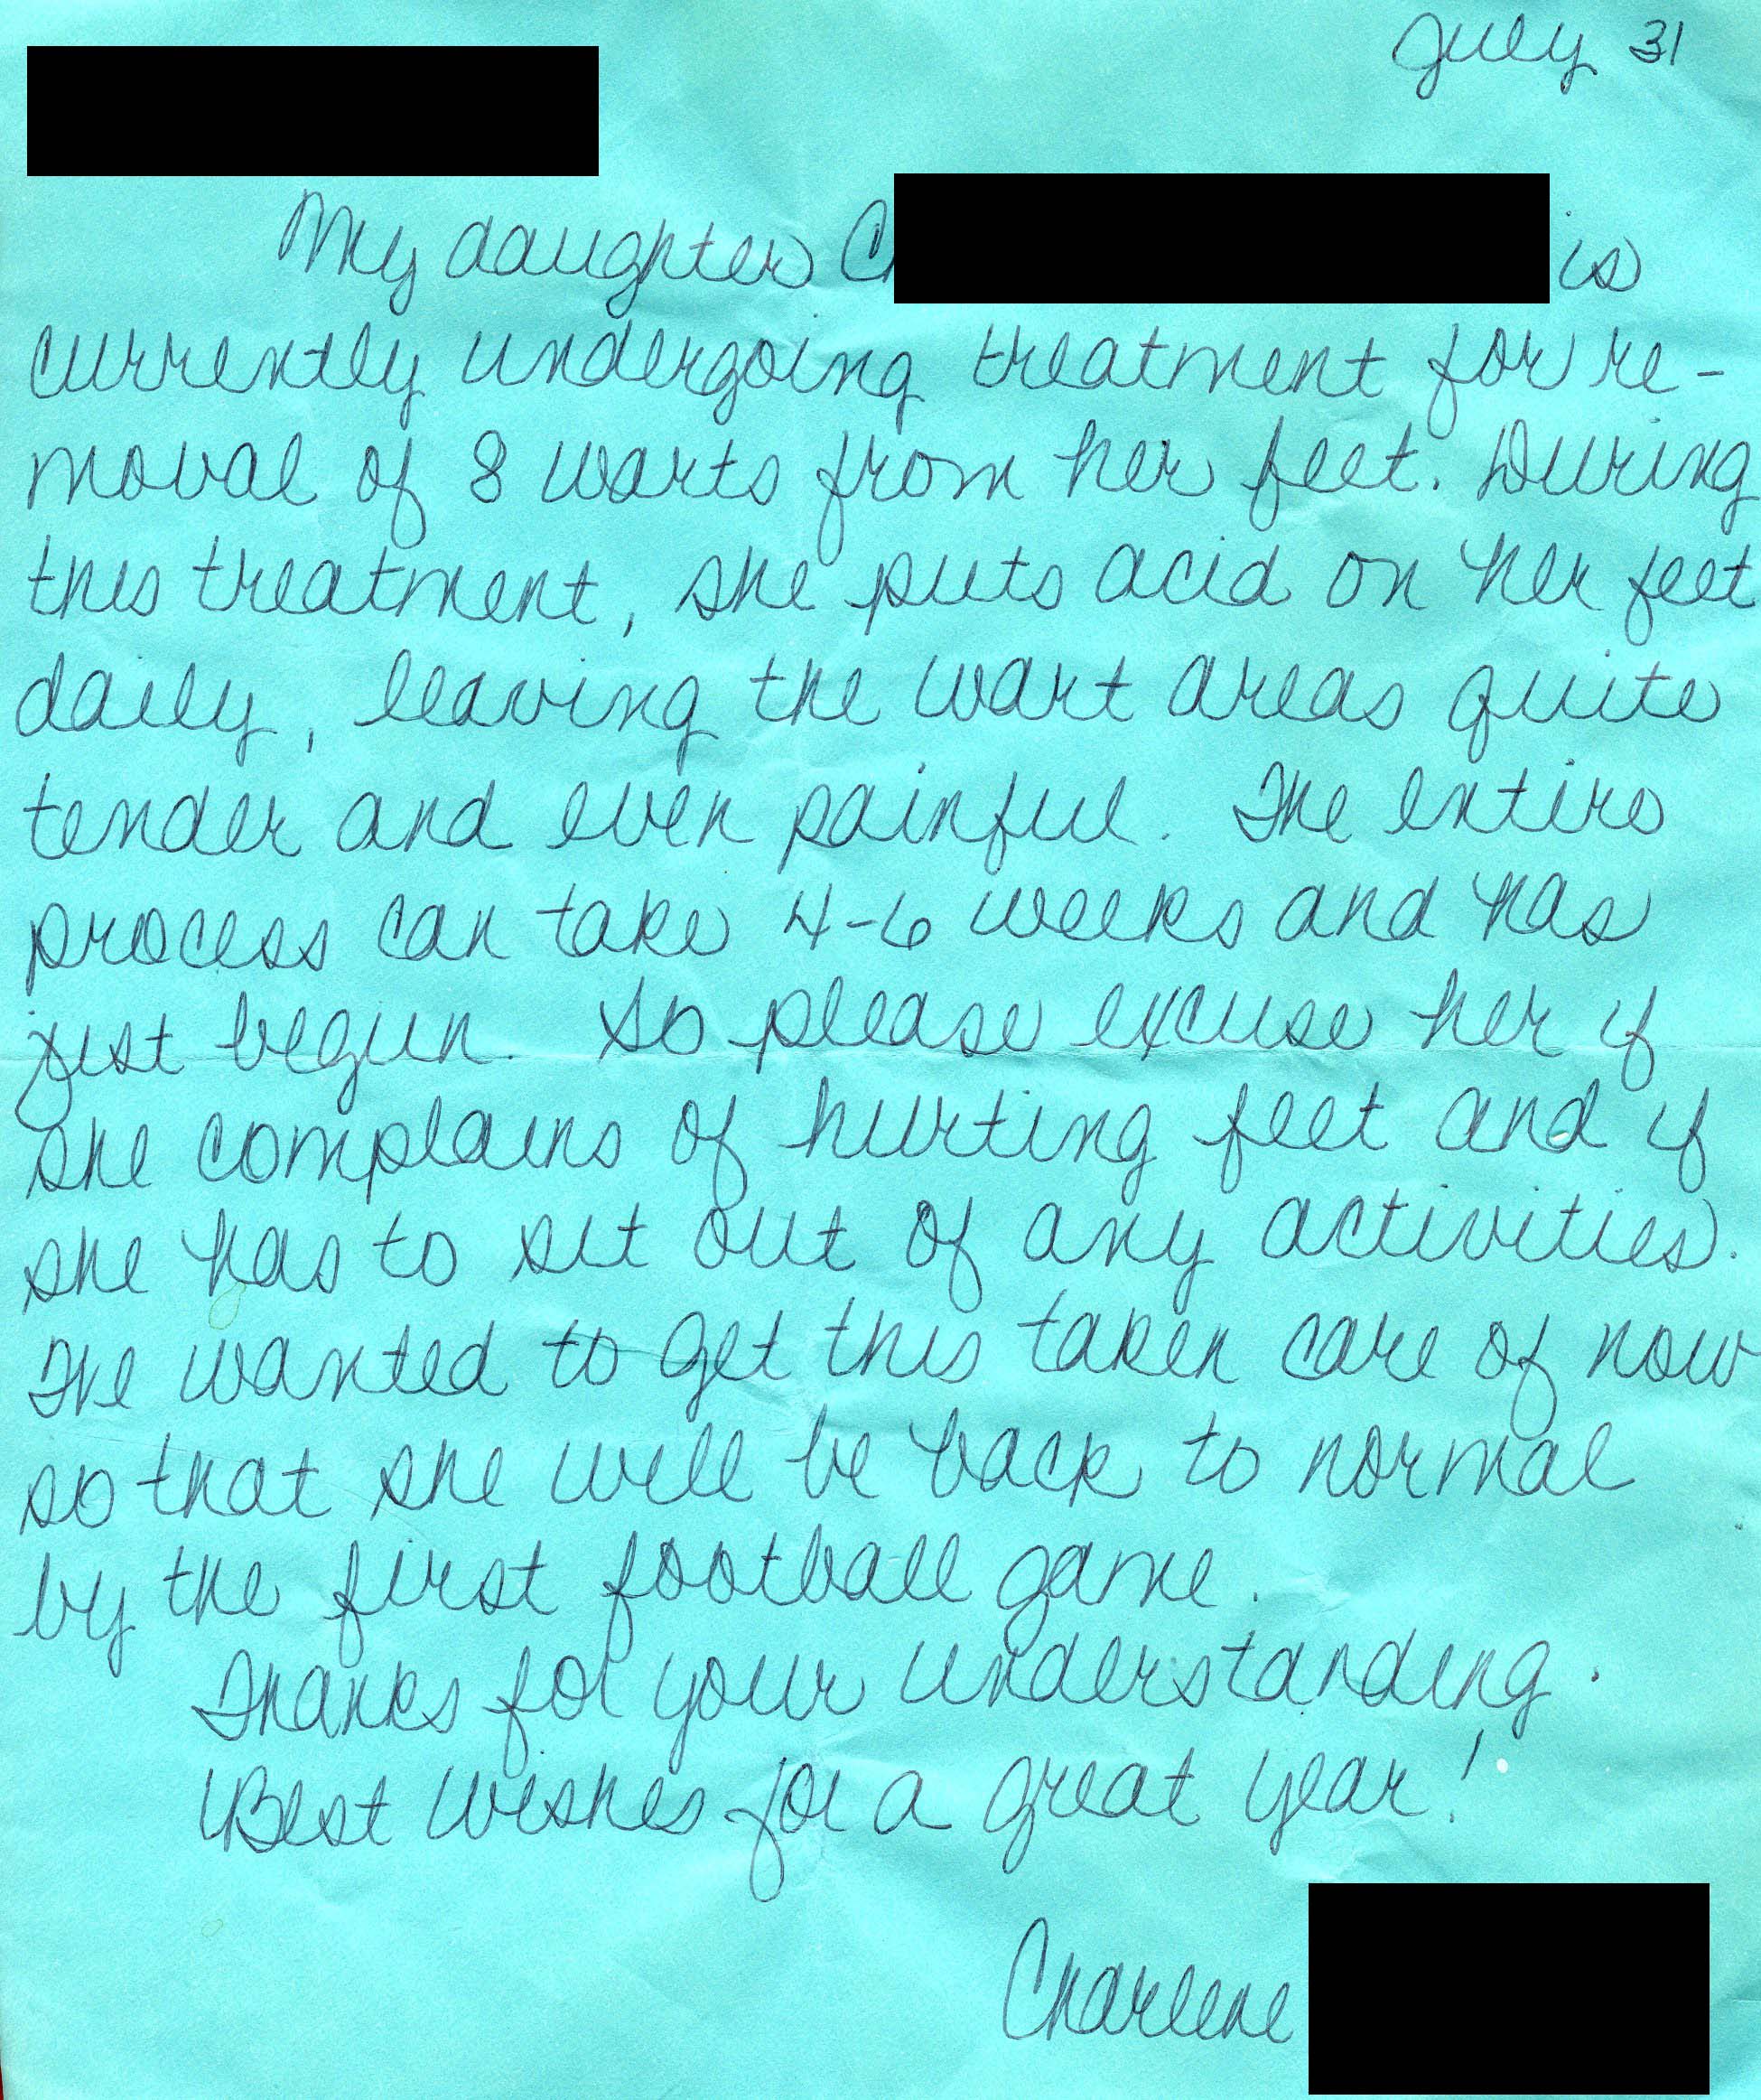 July 31
My daughter C is
currently undergoing treatment for re-
moval of 8 warts from her feet. During
this treatment, she puts acid on her feet
daily, leaving the wart areas quite
tender and even painful. The entire
process can take 4-6 weeks and has
just begun. So please excuse her if
she complains of hurting feet and if
she has to sit out of any activities.
We wanted to get this taken care of now
so that she will be back to normal
by the first football game.
Thanks for your understanding.
Best wishes for a great year!
Charlene